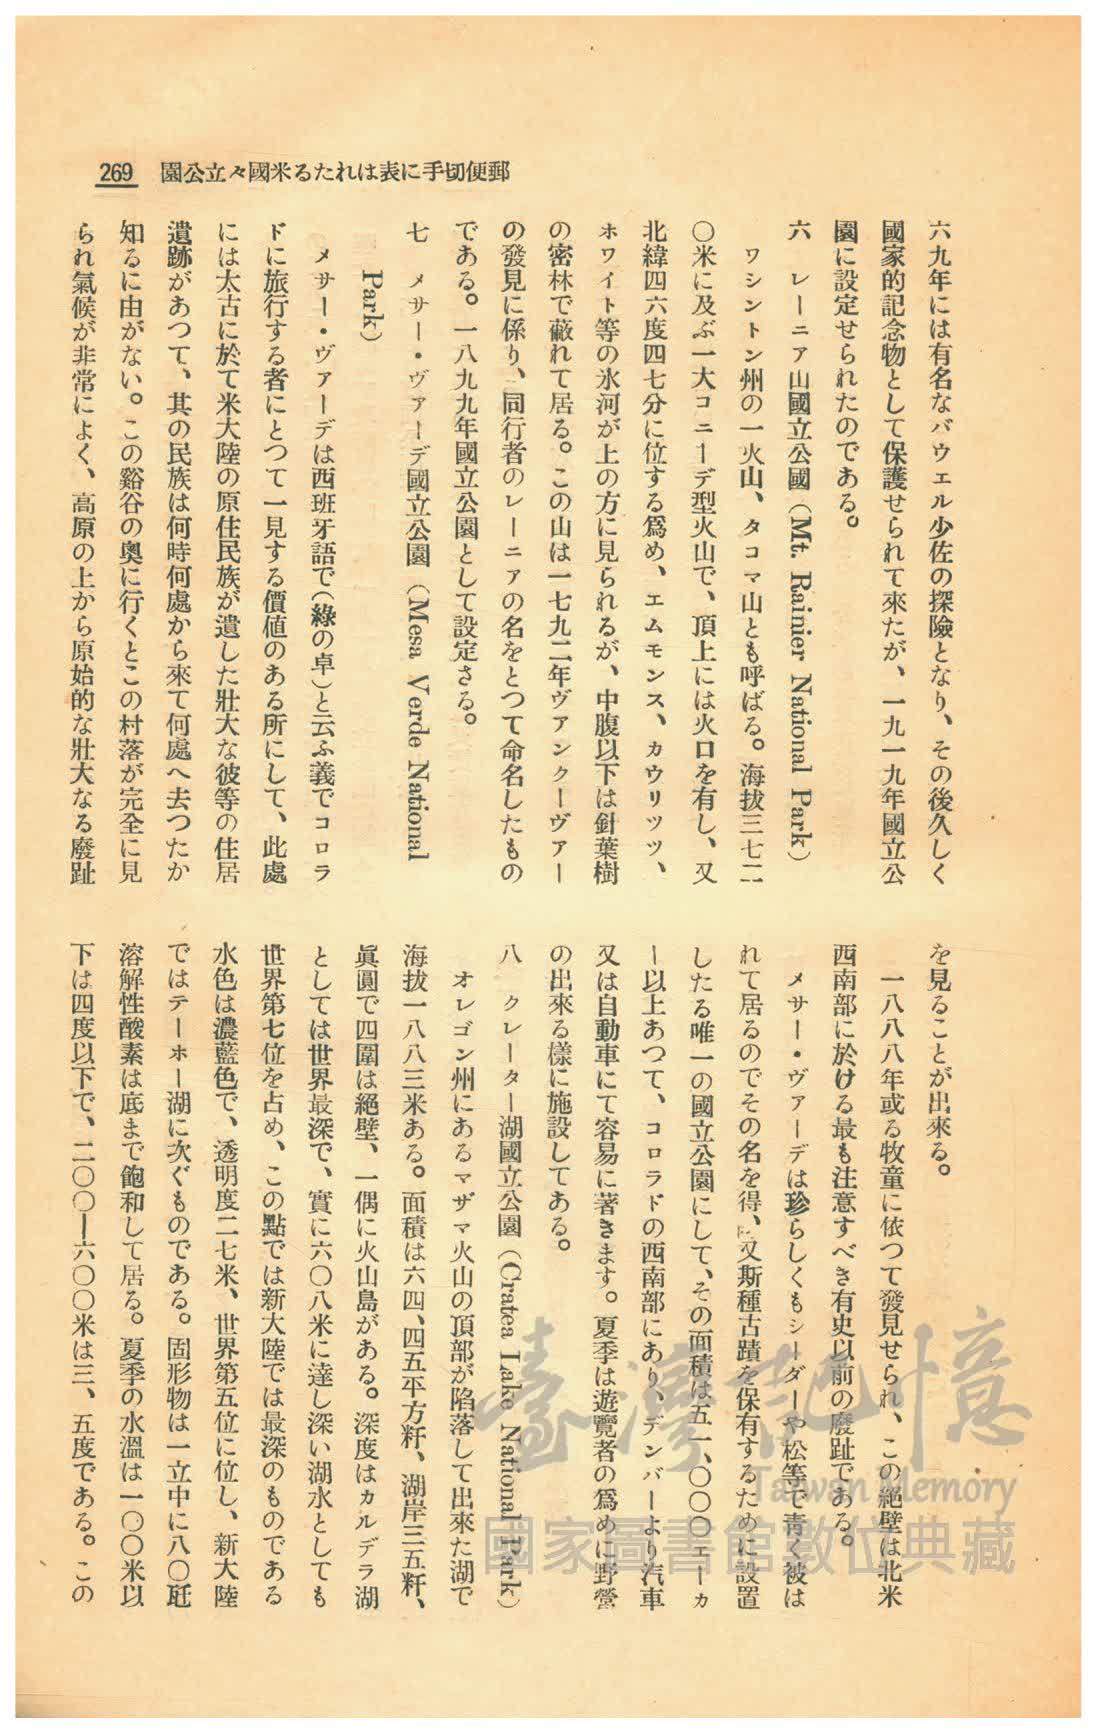 269 園公立々國米るたれは表に手切便郵
六九年には有名なバウエル少佐の探險となり、その後久しく
國家的記念物として保護せられて來たが、一九一九年國立公
園に設定せられたのである。
六 レーニア山國立公國(Mt. Rainier National Park)
ワシントン州の一火山、タコマ山とも呼ばる。海拔三七二
〇米に及ぶ一大コニーデ型火山で、頂上には火口を有し、又
北緯四六度四七分に位する爲め、エムモンス、カウリツツ、
ホワイト等の氷河が上の方に見られるが、中腹以下は針葉樹
の密林で蔽れて居る。この山は一七九二年ヴアンクーヴアー
の發見に係り、同行者のレーニアの名をとつて命名したもの
である。一八九九年國立公園として設定さる。
七 メサー・ヴアーデ國立公園(Mesa Verde National
Park)
メサー・ヴアーデは西班牙語で(綠の卓)と云ふ義でコロラ
ドに旅行する者にとつて一見する價値のある所にして、此處
には太古に於て米大陸の原住民族が遺した壯大な彼等の住居
遺跡があつて、其の民族は何時何處から來て何處へ去つたか
知るに由がない。この谿谷の奧に行くとこの村落が完全に見
られ氣候が非常によく、高原の上から原始的な壯大なる廢趾
を見ることが出來る。
一八八八年或る牧童に依つて發見せられ、この絕壁は北米
西南部に於ける最も注意すべき有史以前の廢趾である。
メサー・ヴアーデは珍らしくもシーダーや松等で靑く被は
れて居るのでその名を得、又斯種古蹟を保有するために設置
したる唯一の國立公園にして、その面積は五一、〇〇〇エーカ
ー以上あつて、コロラドの西南部にあり、デンバーより汽車
又は自動車にて容易に著きます。夏季は遊覽者の爲めに野營
の出來る樣に施設してある。
八 クレーター湖國立公園(Cratea Lake National Park)
オレゴン州にあるマザマ火山の頂部が陷落して出來た湖で
海拔一八八三米ある。面積は六四、四五平方粁、湖岸三五粁、
眞圓で四圍は絕壁、一偶に火山島がある。深度はカルデラ湖
としては世界最深で、實に六〇八米に達し深い湖水としても
世界第七位を占め、この點では新大陸では最深のものである
水色は濃藍色で、透明度二七米、世界第五位に位し、新大陸
ではテーホー湖に次ぐものである。固形物は一立中に八〇瓩
溶解性酸素は底まで飽和して居る。夏季の水溫は一〇〇米以
下は四度以下で、二〇〇ー六〇〇米は三、五度である。この
臺灣記憶
Taiwan Memory
國家圖書館數位典藏